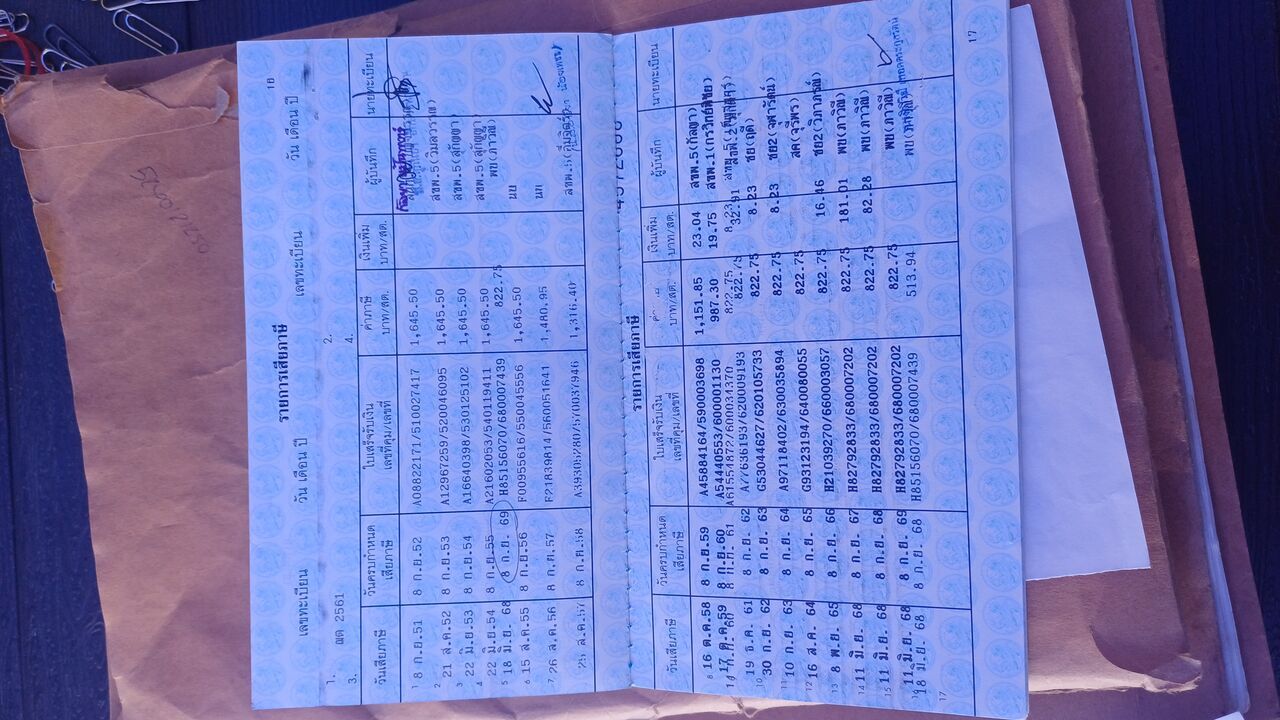 16
รายการเสียภาษี
เลขทะเบียน วัน เดือน ปี เลขทะเบียน วัน เดือน ปี
1. ผต 2561 2.
3. 4.
วันเสียภาษี วันครบกำหนดเสียภาษี ใบเสร็จรับเงิน เลขที่คุม/เลขที่ ค่าภาษี บาท/สต. เงินเพิ่ม บาท/สต. ผู้บันทึก นายทะเบียน
1 8 ก.ย.51 8 ก.ย.52 A08822171/510027417 1,645.50
2 21 ส.ค.52 8 ก.ย.53 A12967259/520046095 1,645.50 สขพ.5(วิมลวรรณ)
3 22 มิ.ย.53 8 ก.ย.54 A16640398/530125102 1,645.50 สขพ.5(สุกัญญา)
4 22 มิ.ย.54 8 ก.ย.55 A21602053/540119411 1,645.50 สขพ.5(สุกัญญา)
5 18 มิ.ย. 68 8 ก.ย. 69 H85156070/680007439 822.75 พย(ภาวิณี)
6 15 ส.ค.55 8 ก.ย.56 F00955616/550045556 1,645.50 นน
7 26 ส.ค.56 8 ก.ย.57 F21839814/560051641 1,480.95 นท
ส.ค.57 8 ก.ย.58 A39305280/570037946 1,316.40
รายการเสียภาษี
วันเสียภาษี วันครบกำหนดเสียภาษี ใบเสร็จรับเงิน เลขที่คุม/เลขที่ บาท/สต. เงินเพิ่ม บาท/สต. ผู้บันทึก นายทะเบียน
8 16 ต.ค.58 8 ก.ย.59 A45884164/590003698 1,151.85 23.04 สขพ.5(กัลญา)
17 ต.ค.59 8 ก.ย.60 A54440553/600001130 987.30 19.75 สขพ.1(กรวิทย์พิชัย)
8 ก.ย. 61 A61554872/600034370 822.75 8.23
19 ธ.ค. 61 8 ก.ย. 62 A77636193/620009193 822.75 32.91
10 30 ก.ย. 62 8 ก.ย. 63 G53044627/620105733 822.75 8.23 ชย(ฤดี)
11 10 ก.ย. 63 8 ก.ย. 64 A97118402/630035894 822.75 8.23 ชย2(จศารัตน์)
12 16 ส.ค. 64 8 ก.ย. 65 G93123194/640080055 822.75 สค(จุรีพร)
13 8 พ.ย. 65 8 ก.ย. 66 H21039270/680003057 822.75 16.46 ชย2(วิภาภรณ์)
14 11 มิ.ย. 68 8 ก.ย. 67 H82792833/680007202 822.75 181.01 พย(ภาวิณี)
15 11 มิ.ย. 68 8 ก.ย. 68 H82792833/680007202 822.75 82.28 พย(ภาวิณี)
11 มิ.ย. 68 8 ก.ย. 69 H82792833/680007202 822.75 พย(ภาวิณี)
18 มิ.ย. 68 8 ก.ย. 68 H85156070/680007439 513.94
17
17